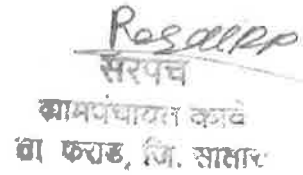 सरपंच
ग्रामपंचायत काले
ता कराड, जि. सातारा